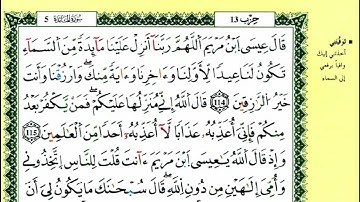 حِزْب 13
سُورَةُ الْمَائِدَة 5
قَالَ عِيسَى اَبْنُ مَرْيَمَ اَللَّهُمَّ رَبَّنَا أَنزِلْ عَلَيْنَا مَآئِدَةً مِّنَ اَلسَّمَآءِ
تَكُونُ لَنَا عِيداً لِّأَوَّلِنَا وَءَاخِرِنَا وَءَايَةً مِّنكَ وَارْزُقْنَا وَأَنتَ
خَيْرُ اُلرَّٰزِقِينَ 114 قَالَ اَللَّهُ إِنِّي مُنَزِّلُهَا عَلَيْكُمْ فَمَنْ يَّكْفُرْ بَعْدُ
مِنكُمْ فَإِنِّيَ أُعَذِّبُهُۥ عَذَاباً لَّآ أُعَذِّبُهُۥٓ أَحَداً مِّنَ اَلْعَٰلَمِينَ 115
وَإِذْ قَالَ اَللَّهُ يَٰعِيسَى اَبْنَ مَرْيَمَ ءَآنتَ قُلْتَ لِلنَّاسِ اِتَّخِذُونِي
وَأُمِّيَ إِلَٰهَيْنِ مِن دُونِ اِللَّهِ قَالَ سُبْحَٰنَكَ مَا يَكُونُ لِيَ أَنْ
تَوَفَّيْتَنِي
أخذتني إليك
وافيا برفعي
إلى السماء